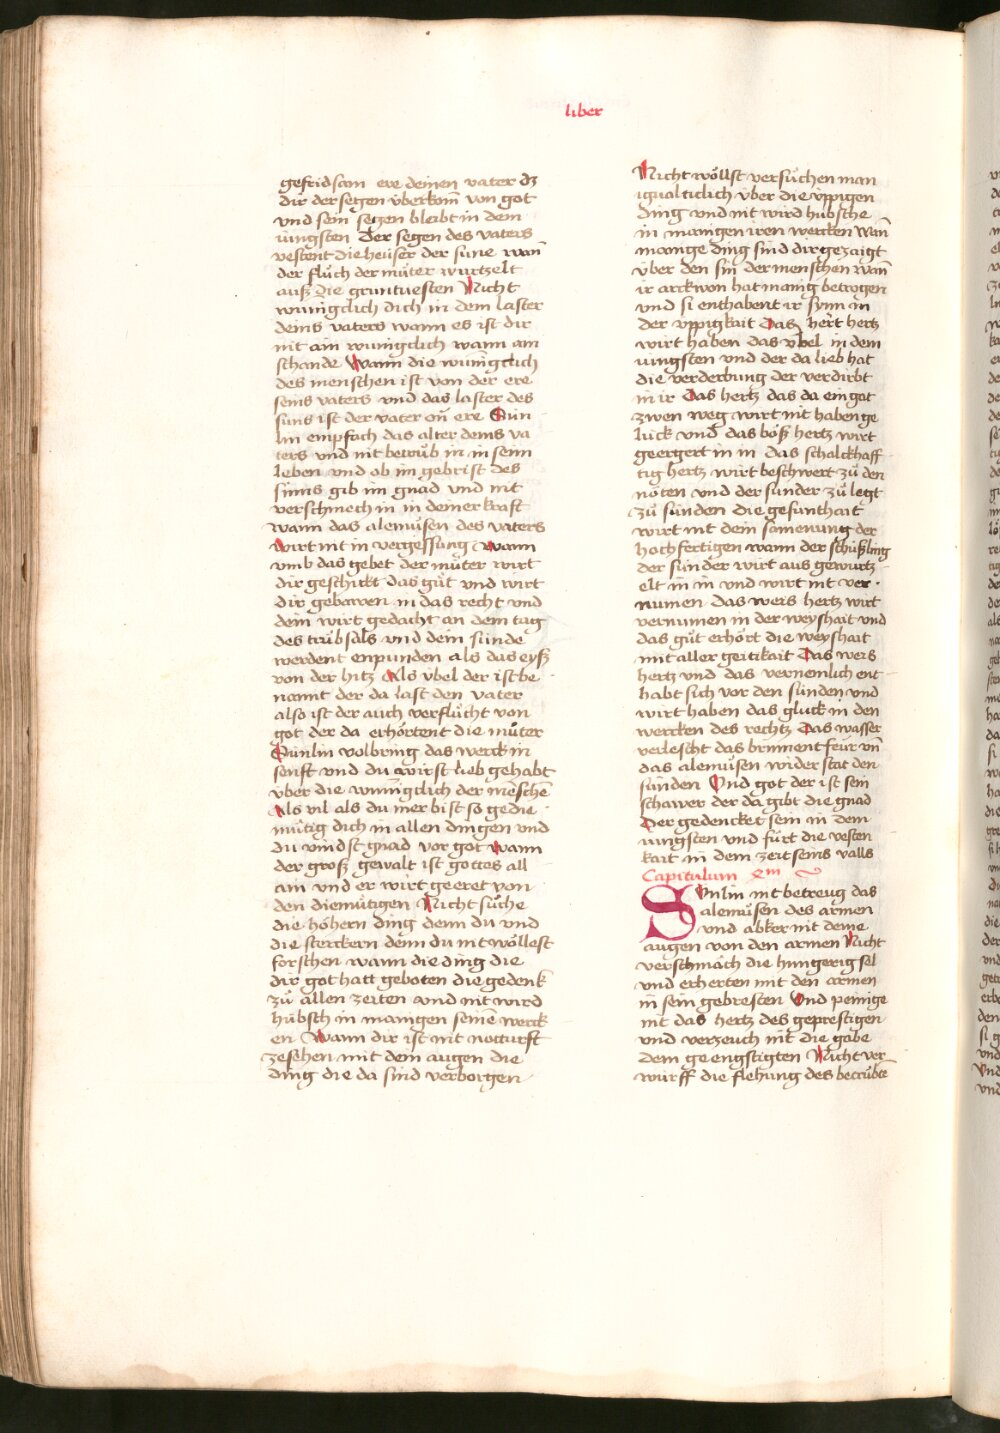 liber
gefridsam ere deinen vater dz
dir der segen vberkom̄ von got
vnd sein segen bleibt in dem
iungsten Der segen des vaters
vestent die heuser der süne wan̄
der flůch der můter wurtzelt
auß die gruntuesten Nicht
wunigclich dich in dem laster
deins vaters wann es ist dir
nit ain wunigclich wann am
schande Wann die wunigclich
des menschen ist von der ere
seins vaters vnd das laster des
suns ist der vater on̄ ere Sün
lin empfach das alter deins va
ters vnd nit betrůb in in seim
leben vnd ob im gebrist des
sinns gib im gnad vnd nit
verschmech in in deiner kraft
wann das alemůsen des vaters
wirt nit in vergessung Wann
vmb das gebet der můter wirt
dir geschickt das gůt vnd wirt
dir gebawen in das recht vnd
dein wirt gedacht an dem tag
des trübsals vnd dein sünde
werdent enpunden als das eyß
von der hitz Als vbel der ist be
nannt der da last den vater
also ist der auch verflůcht von
got der da erhörtent die můter
Sünlin volbring das werck in
senft vnd du wirst lieb gehabt
vber die wunigclich der mēschē
Als vil als du mer bist so gedie
mütig dich in allen dingen vnd
du vindst gnad vor got Wann
der groß gewalt ist gottes all
ain vnd er wirt geeret von
den diemütigen Nicht sůche
die höhern ding denn du vnd
die sterckern denn du nit wöllest
forschen wann die ding die
dir got hatt geboten die gedenk
zů allen zeiten vnd nit wird
hübsch in manigen seinē werck
en Wann dir ist nit notturft
zesehen mit dem augen die
ding die da sind verborgen
Nicht wöllst versůchen man
igualticlich vber die vppigen
ding vnd nit wird hübsche
in manigen iren wercken Wan̄
manige ding sind dir gezaigt
vber den sin der menschen wan̄
ir arckwon hat manig betrogen
vnd si enthabent ir synn in
der vppigkait Das hert hertz
wirt haben das vbel in dem
iungsten vnd der da lieb hat
die verderbung der verdirbt
in ir Das hertz das da ein gat
zwen weg wirt nit haben ge
lück vnd das böß hertz wirt
geergert in in das schalckhaff
tig hertz wirt beschwert zů den
nöten vnd der sunder zů legt
zů sünden die gesunthait
wirt nit dem samenung der
hochfertigen wann der schüßling
der sünder wirt aus gewurtz
elt in in vnd wirt nit ver
numen das weis hertz wirt
vernumen in der weyshait vnd
das gůt erhört die weyshait
mit aller geitikait Das weis
hertz vnd das vernemlich ent
habt sich vor den sünden vnd
wirt haben das gluck in den
wercken des rechtz Das wasser
verlescht das brinnent feür vn̄
das alemůsen widerstat den
sünden Vnd got der ist sein
schawer der da gibt die gnad
Der gedencket sein in dem
iungsten vnd fürt die vesten
kait in dem zeit seins valls
Capitulum xm
SVnlin nit betreug das
alemůsen des armen
vnd abker nit deine
augen von den armen Nicht
verschmäch die hungerig sel
vnd erherten mit den armen
in sein gebresten Vnd peinige
nit das hertz des geprestigen
vnd verzeuch nit die gabe
dem geengstigten Nicht ver
wurff die flehung des betrůbte